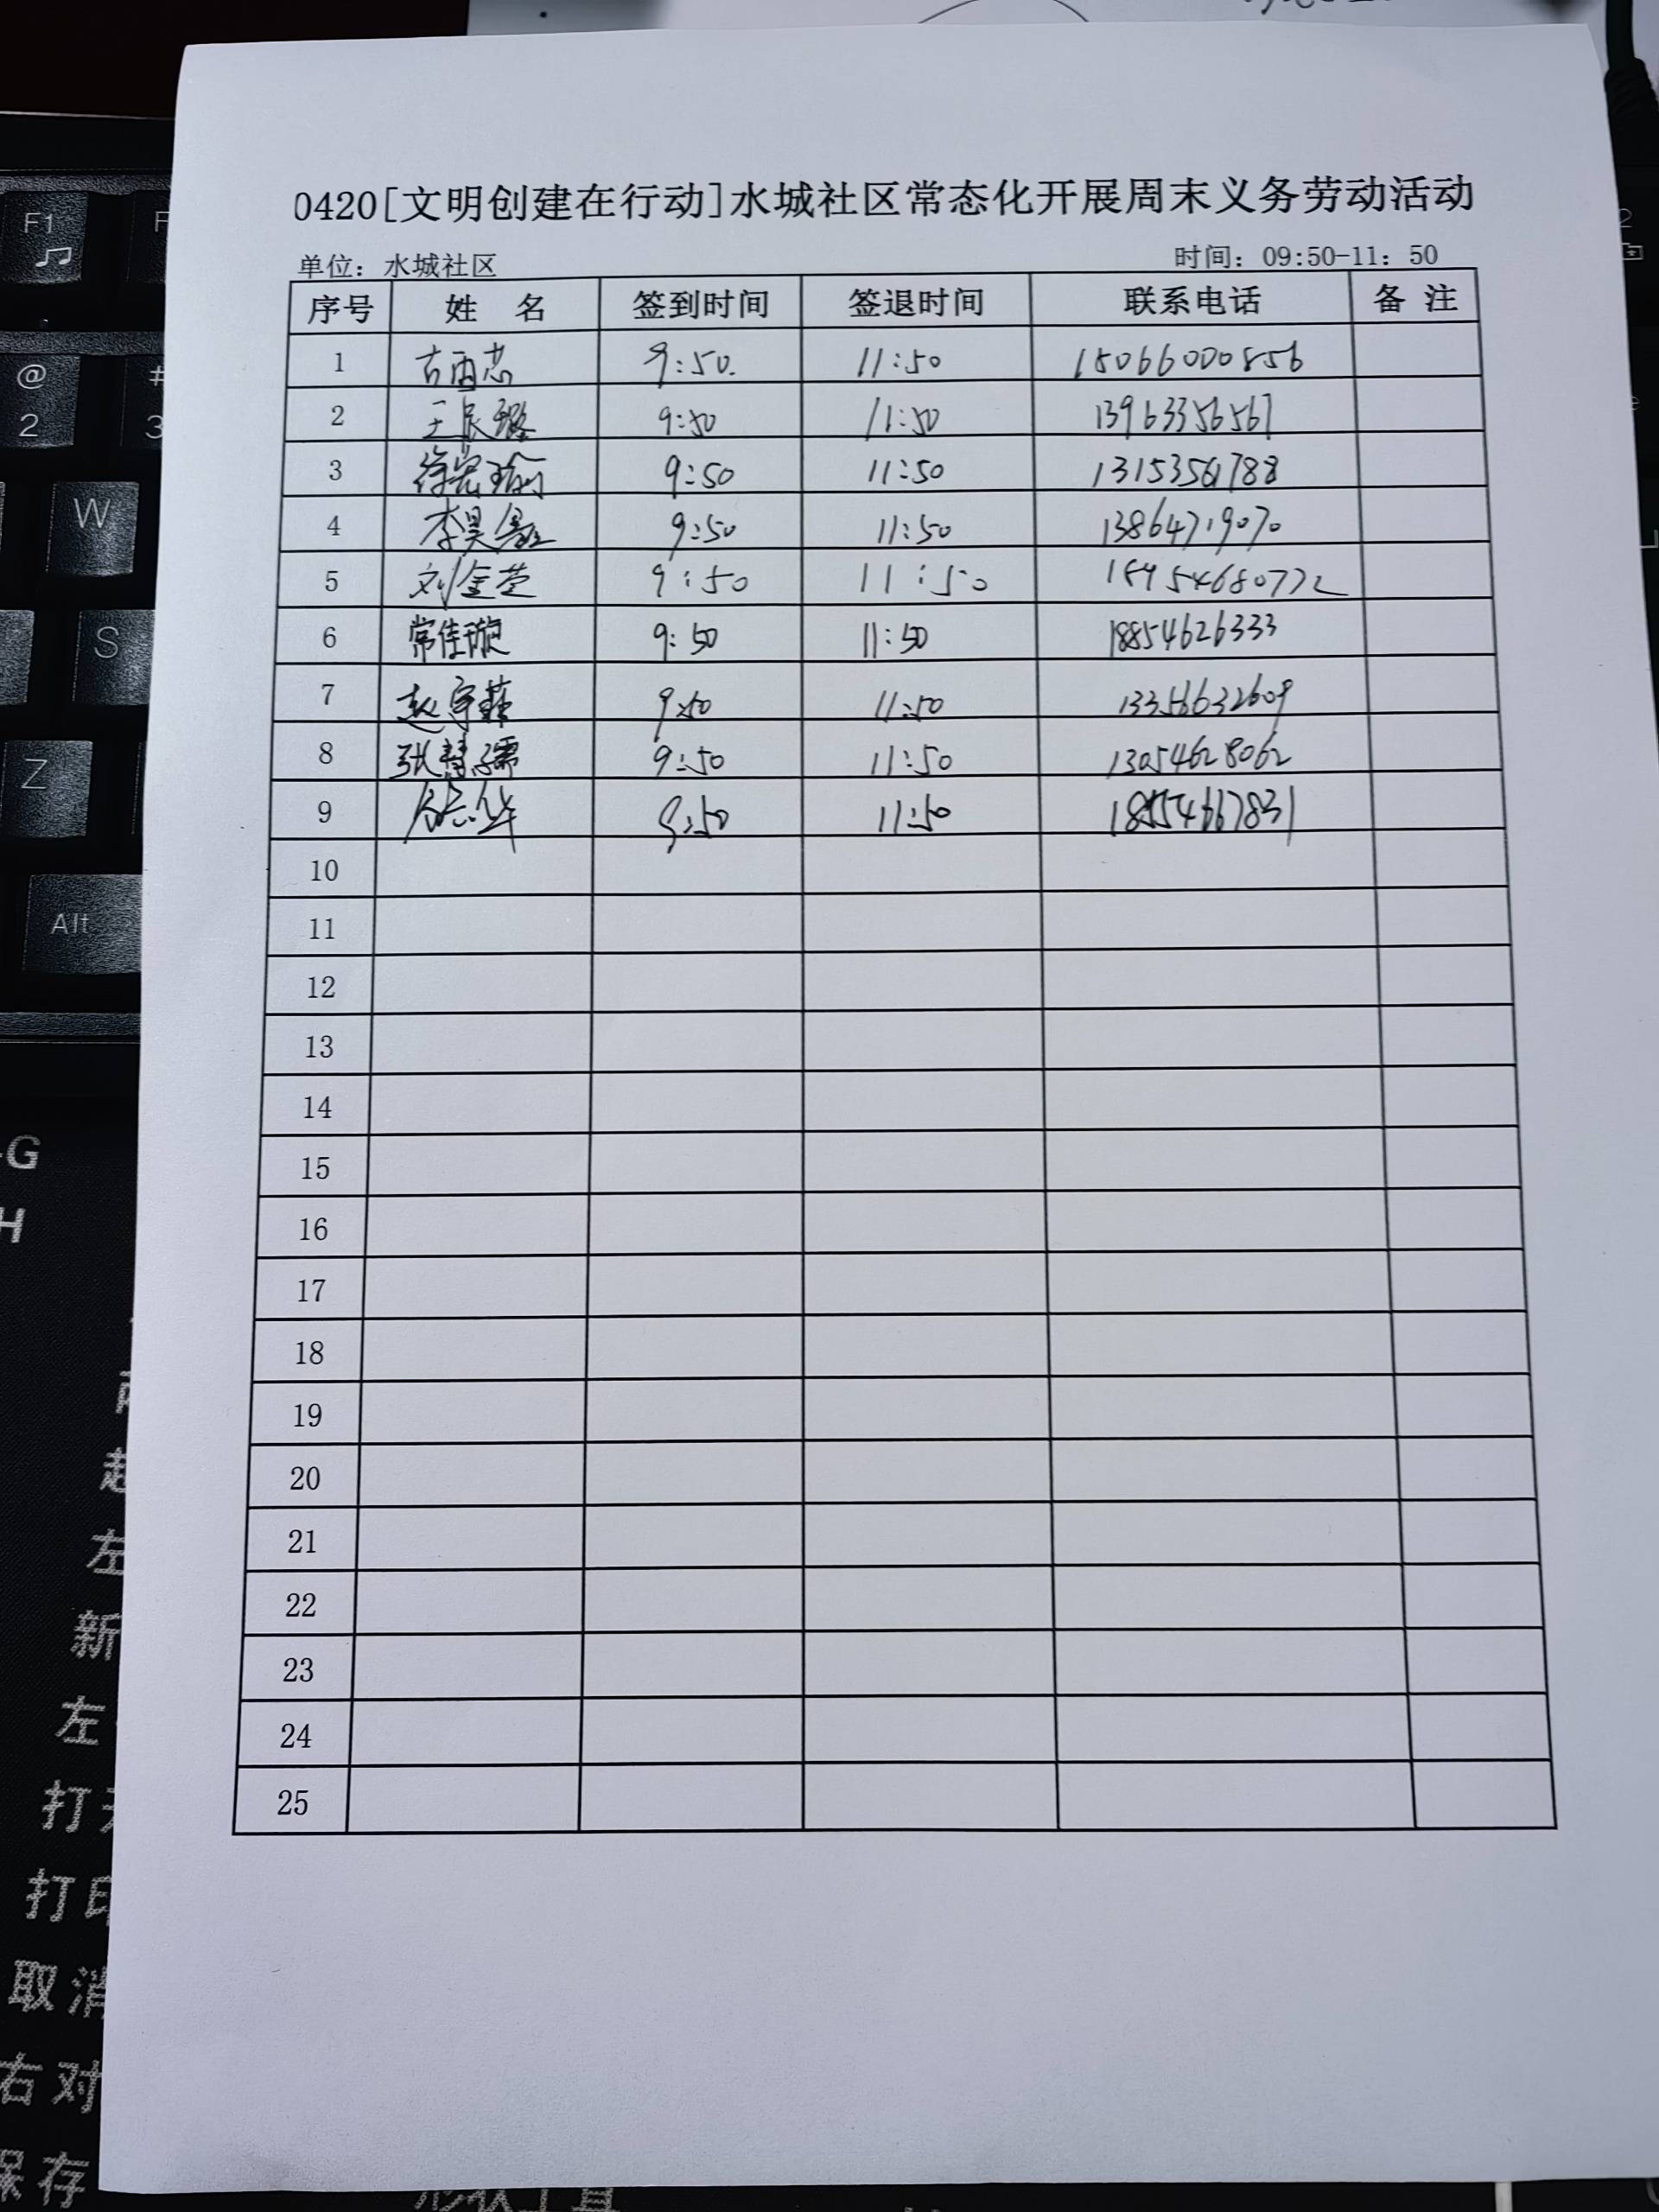 0420[文明创建在行动]水城社区常态化开展周末义务劳动活动
单位：水城社区 时间：09:50-11：50
序号 姓 名 签到时间 签退时间 联系电话 备 注
1 9:50. 11:50 15066000856
2 9:50 11:50 13963356567
3 9:50 11:50
4 李昊 9:50 11:50 13864719070
5 刘金莹 9:50 11:50
6 常佳璇 9:50 11:50 18854626333
7 赵 9:50 11:50 13356632609
8 张慧 9:50 11:50 13054628062
9 9:50 11:50
10
11
12
13
14
15
16
17
18
19
20
21
22
23
24
25
F1
@
2
#
3
W
S
Z
Alt
G
H
左
新
左
打
打印
取消
右对
保存